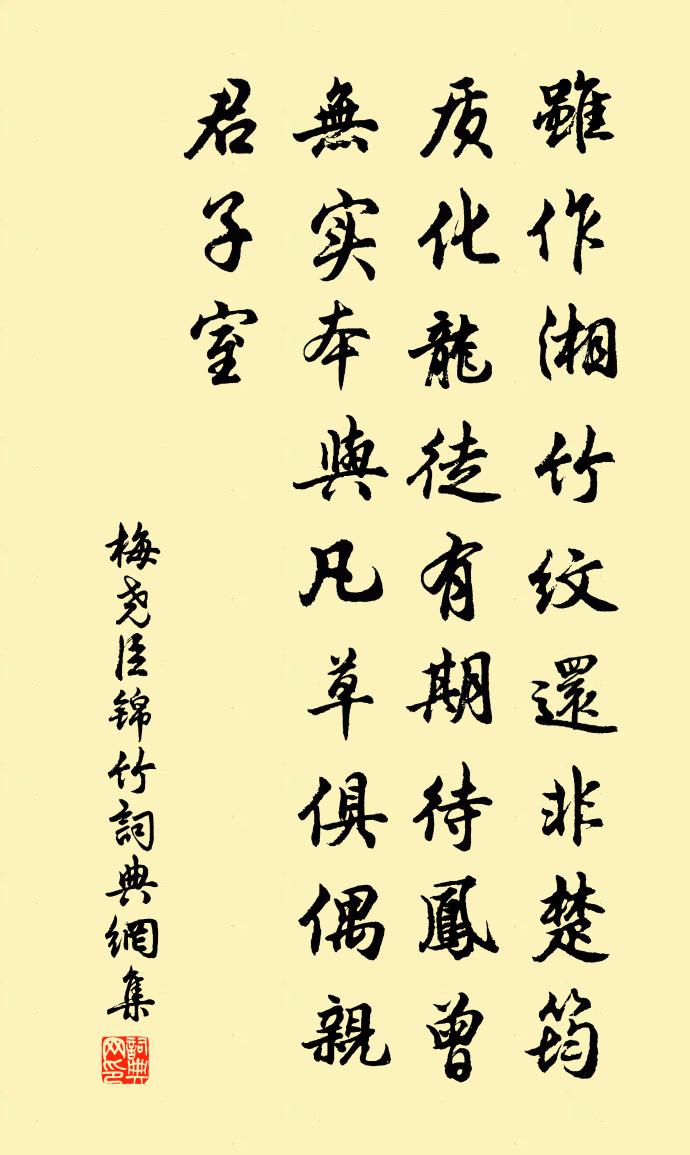 雖作湘竹紋還非楚筠
质化龍徒有期待鳳曾
無实本與凡草俱偶親
君子室
梅尧臣锦竹詞典網集
詞典網印